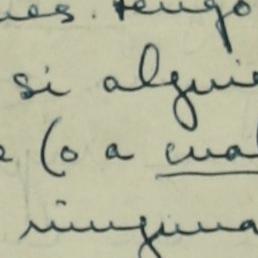 ues. tengo
si alguie
e (o a cual
ninguna